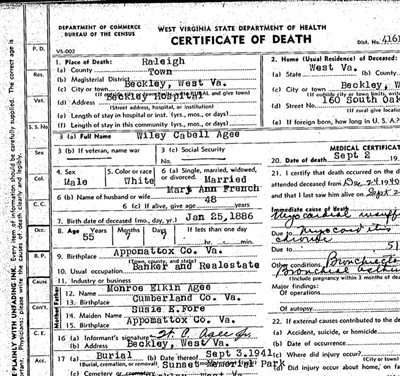 DEPARTMENT OF COMMERCE
BUREAU OF THE CENSUS
WEST VIRGINIA STATE DEPARTMENT OF HEALTH
CERTIFICATE OF DEATH
Dist. No. 4161
VS-002
1. Place of Death: Raleigh
(a) County Town
(b) Magisterial District
(c) City or town Beckley, West Va.
(d) Address Beckley Hospital
(Street address, hospital, or institution)
(e) Length of stay in hospital or inst. (yrs., mos., or days)
(f) Length of stay in community (yrs., mos., or days)
2. Home (Usual Residence) of Deceased:
(a) State West Va. (b) County
(c) City or town Beckley, W
(d) Street No. 160 South Oak
(e) If foreign born, how long in U. S. A.?
3 (a) Full Name Wiley Cabell Agee
3 (b) If veteran, name war
3 (c) Social Security No.
4. Sex Male
5. Color or race White
6 (a) Single, married, widowed, or divorced Married
6 (b) Name of husband or wife Mary Ann French
6 (c) If alive, give age 48 years
7. Birth date of deceased (mo., day, yr.) Jan 25, 1886
8. Age 55 7 7 If less than one day
hr. min.
9. Birthplace Appomattox Co. Va.
(Town, county, and state)
10. Usual occupation Banker and Realestate
11. Industry or business
12. Name Monroe Elkin Agee
13. Birthplace Cumberland Co. Va.
14. Maiden Name Susie K. Fore
15. Birthplace Appomattox Co. Va.
16 (a) Informant's signature W. C. Agee Jr.
(b) Address Beckley, West Va.
17 (a) Burial (b) Date thereof Sept 3, 1941
(Burial, cremation, or removal)
(c) Cemetery or Sunset Memorial Park
MEDICAL CERTIFICAT
20. Date of death Sept 2
21. I certify that death occurred on the d
attended deceased from Dec 24 1940
and that I saw him alive on Sept 2
Immediate cause of death
Due to Myocarditis
chronic
Due to
Other conditions Bronchiecta
Bronchial asthma
(Include pregnancy within 3 months of dea
Major findings:
Of operations
Of autopsy
22. If external causes contributed to de
(a) Accident, suicide, or homicide
(b) Date of occurrence
(c) Where did injury occur?
(d) Did injury occur in or
P. D.
Res.
Vet.
S. S. No
Sex
Col.
Age
B. P.
Occ.